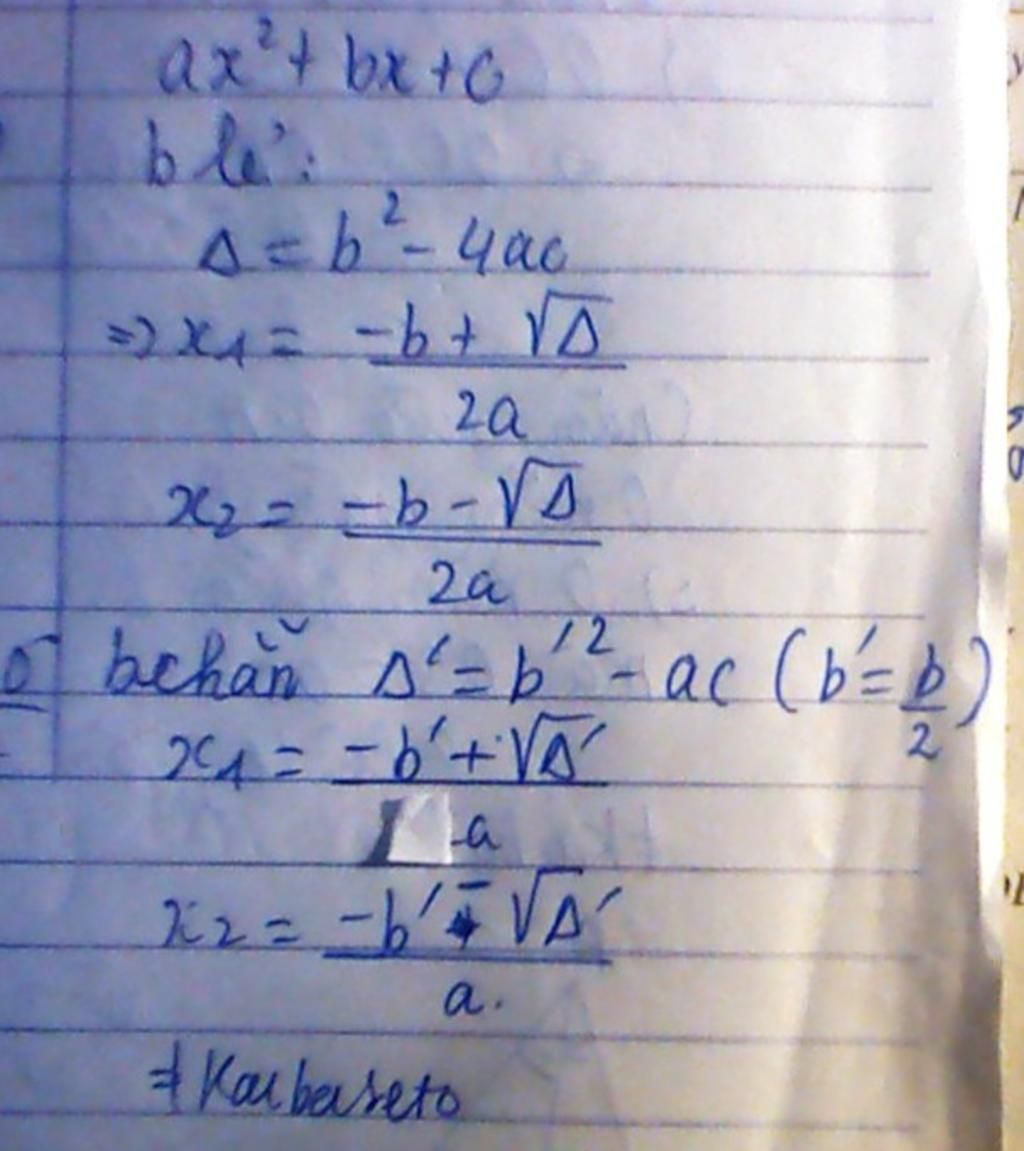 ax² + bx + c
b lẻ:
Δ = b² - 4ac
=> x₁ = (-b + √Δ) / 2a
x₂ = (-b - √Δ) / 2a
b chẵn Δ' = b'² - ac (b' = b/2)
x₁ = (-b' + √Δ') / a
x₂ = (-b' - √Δ') / a.